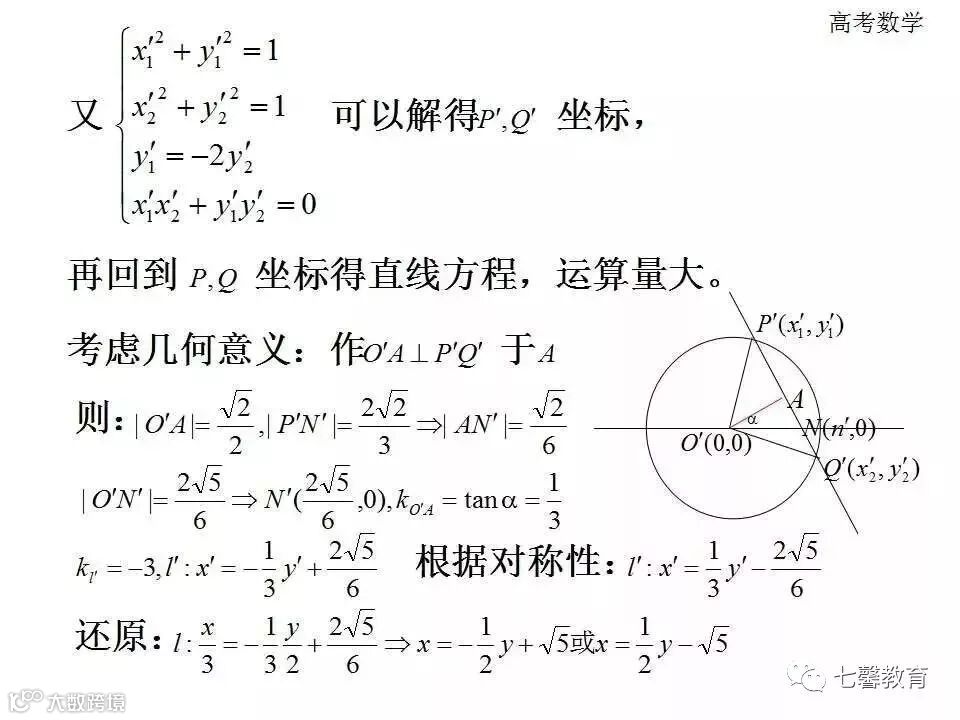 高考数学
又 { x′₁² + y′₁² = 1
x′₂² + y′₂² = 1
y′₁ = −2y′₂
x′₁x′₂ + y′₁y′₂ = 0
可以解得P′,Q′ 坐标，
再回到 P,Q 坐标得直线方程，运算量大。
考虑几何意义：作O′A⊥P′Q′ 于A
则：|O′A|=√2/2,|P′N′|=2√2/3⇒|AN′|=√2/6
|O′N′|=2√5/6⇒N′(2√5/6,0),k_{O′A}=tanα=1/3
k_{l′}=−3,l′:x′=−1/3 y′+2√5/6 根据对称性：l′:x′=1/3 y′−2√5/6
还原：l:x/3=−1/3 y/2+2√5/6⇒x=−1/2 y+√5或x=1/2 y−√5
P′(x′₁,y′₁)
A
α
O′(0,0)
N(n′,0)
Q′(x′₂,y′₂)
七馨教育
大数跨境